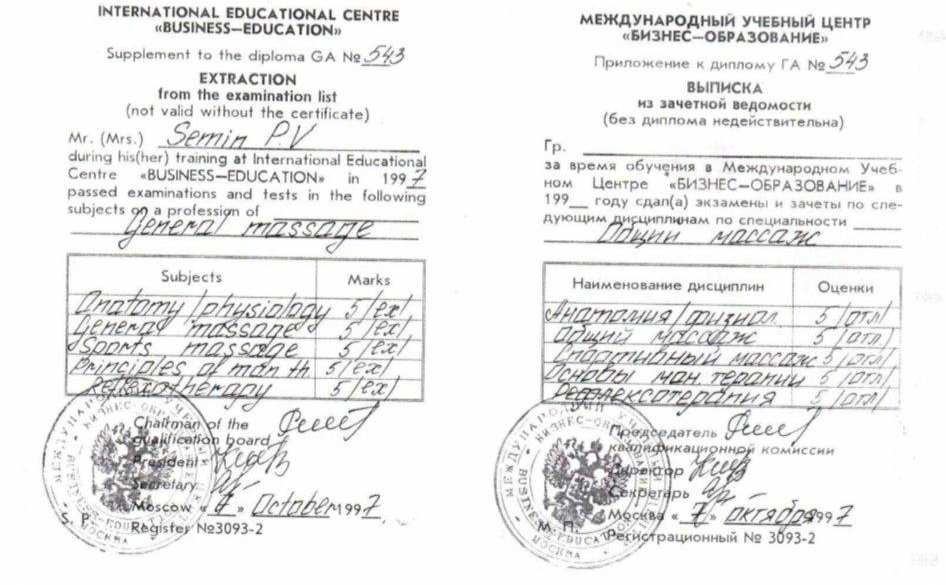 INTERNATIONAL EDUCATIONAL CENTRE
«BUSINESS—EDUCATION»
Supplement to the diploma GA № 543
EXTRACTION
from the examination list
(not valid without the certificate)
Mr. (Mrs.) Semin P.V
during his(her) training at International Educational
Centre «BUSINESS—EDUCATION» in 1997
passed examinations and tests in the following
subjects on a profession of
General massage
Subjects Marks
Anatomy/physiology 5/ex/
General massage 5/ex/
Sports massage 5/ex/
Principles of man th. 5/ex/
Reflexotherapy 5/ex/
Chairman of the
qualification board
President
Secretary
Moscow «7» October 1997
S. P.
Register №3093-2
МЕЖДУНАРОДНЫЙ УЧЕБНЫЙ ЦЕНТР
«БИЗНЕС—ОБРАЗОВАНИЕ»
Приложение к диплому ГА № 543
ВЫПИСКА
из зачетной ведомости
(без диплома недействительна)
Гр.
за время обучения в Международном Учеб-
ном Центре «БИЗНЕС—ОБРАЗОВАНИЕ» в
199__ году сдал(а) экзамены и зачеты по сле-
дующим дисциплинам по специальности
Общий массаж
Наименование дисциплин Оценки
Анатомия/физиол. 5/отл/
Общий массаж 5/отл/
Спортивный массаж 5/отл/
Основы ман. терапии 5/отл/
Рефлексотерапия 5/отл/
Председатель
квалификационной комиссии
Директор
Секретарь
Москва «7» октября 1997
М. П.
Регистрационный № 3093-2